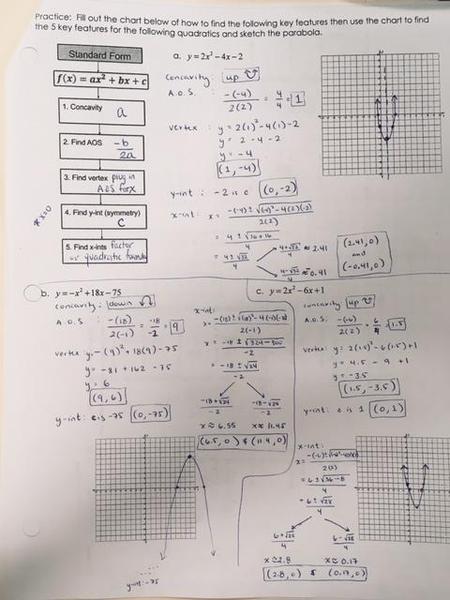 Practice: Fill out the chart below of how to find the following key features then use the chart to find
the 5 key features for the following quadratics and sketch the parabola.
Standard Form
f(x) = ax² + bx + c
1. Concavity
a
2. Find AOS
-b
2a
3. Find vertex plug in
AOS for x
* x=0
4. Find y-int (symmetry)
C
5. Find x-ints factor
or quadratic formula
a. y=2x²-4x-2
Concavity: up
A.O.S. -(-4)/2(2) = 4/4 = 1
vertex: y = 2(1)²-4(1)-2
y = 2-4-2
y = -4
(1,-4)
y-int: -2 is c (0,-2)
x-int: x = -(-4) ± √(-4)²-4(2)(-2)
2(2)
= 4 ± √16+16
4
= 4 ± √32
4
4+√32
4
≈ 2.41
4-√32
4
≈ -0.41
(2.41,0)
and
(-0.41,0)
b. y=-x²+18x-75
concavity: down
A.O.S. -(18)/2(-1) = -18/-2 = 9
vertex y=-(9)²+18(9)-75
y = -81 + 162 - 75
y = 6
(9,6)
y-int: c is -75 (0,-75)
x-int:
x = -(18) ± √(18)²-4(-1)(-75)
2(-1)
x = -18 ± √324-300
-2
= -18 ± √24
-2
-18+√24
-2
-18-√24
-2
x ≈ 6.55 x ≈ 11.45
(6.5,0) & (11.4,0)
y-int: -75
c. y=2x²-6x+1
concavity: up
A.O.S. -(-6)/2(2) = 6/4 = 1.5
vertex: y = 2(1.5)²-6(1.5)+1
y = 4.5 - 9 +1
y = -3.5
(1.5,-3.5)
y-int: c is 1 (0,1)
x-int:
2(2)
= 6 ± √36-8
4
= 6 ± √28
4
6+√28
4
6-√28
4
x ≈ 2.8 x ≈ 0.17
(2.8,0) & (0.17,0)